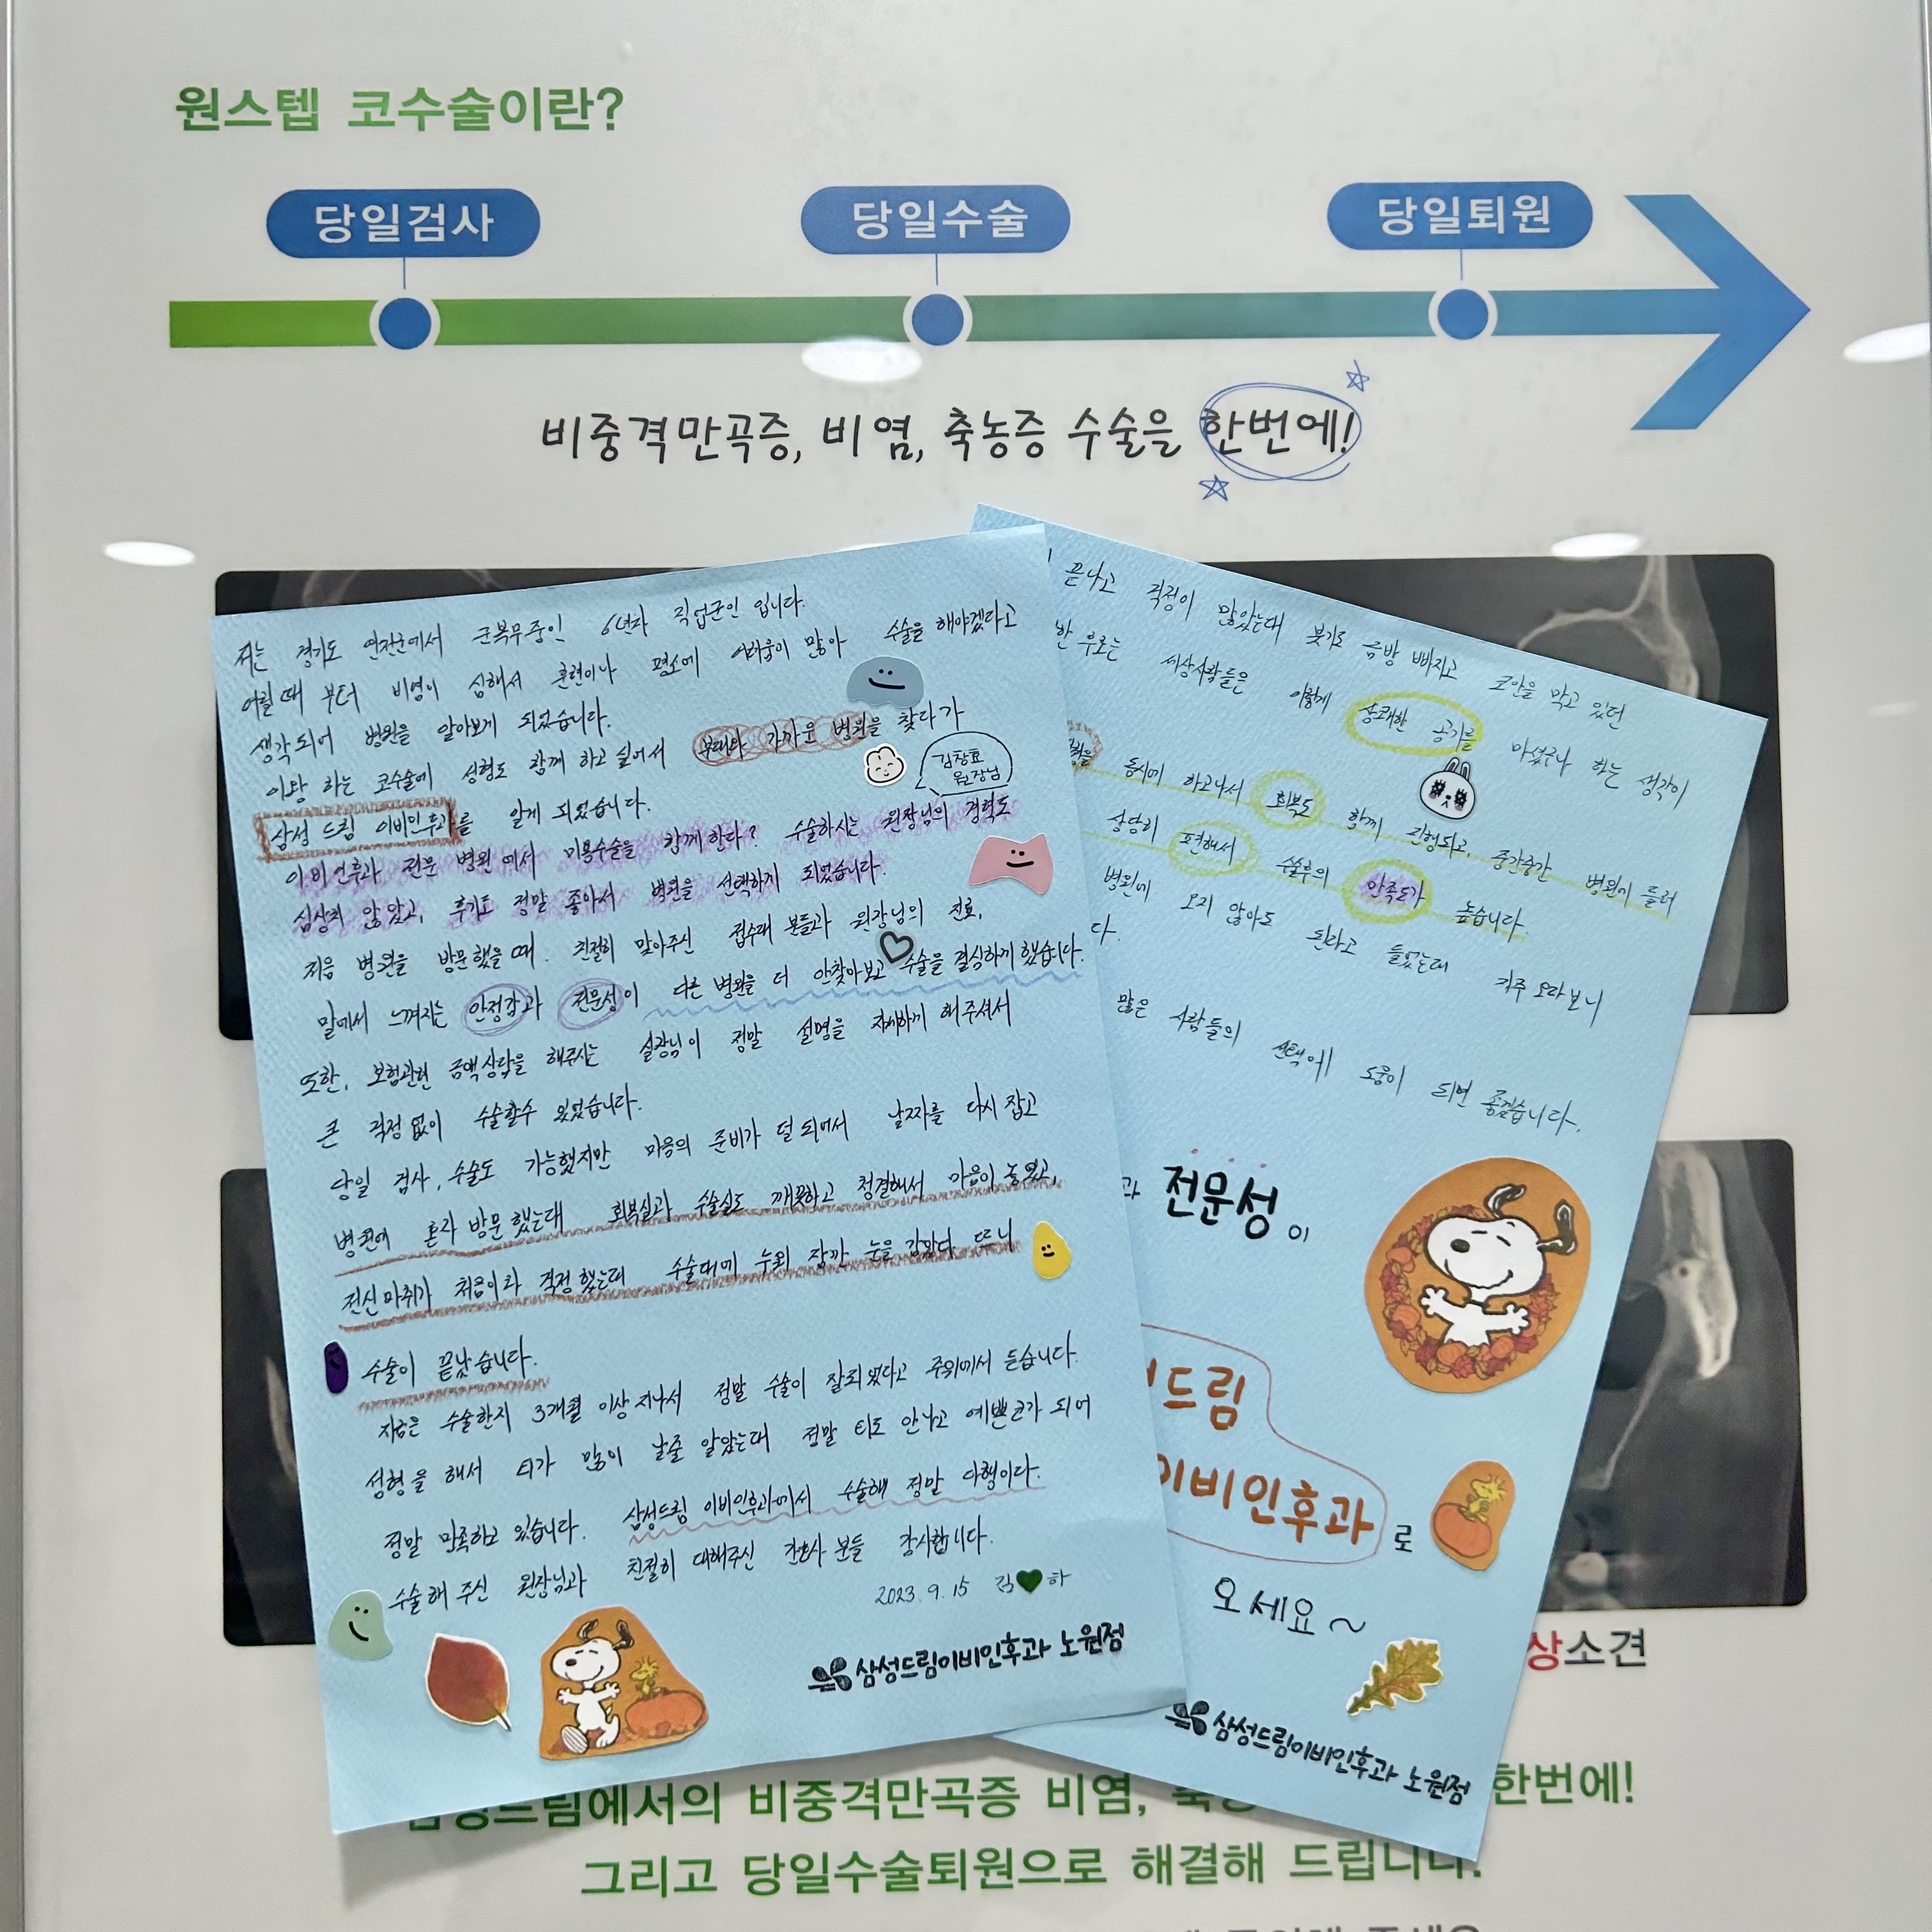 원스텝 코수술이란?
당일검사
당일수술
당일퇴원
비중격만곡증, 비염, 축농증 수술을 한번에!
저는 경기도 연천군에서 군복무중인 6년차 직업군인 입니다.
어릴때 부터 비염이 심해서 훈련이나 평소에 어려움이 많아 수술을 해야겠다고
생각되어 병원을 알아보게 되었습니다.
이왕 하는 코수술에 성형도 함께 하고싶어서 부대와 가까운 병원을 찾다가
삼성 드림 이비인후과를 알게 되었습니다.
김창효
원장님
이비인후과 전문 병원에서 미용수술을 함께한다? 수술하시는 원장님의 경력도
심상치 않았고, 후기도 정말 좋아서 병원을 선택하게 되었습니다.
처음 병원을 방문했을때. 친절히 맞아주신 접수대 분들과 원장님의 진료,
말에서 느껴지는 안정감과 전문성이 다른 병원을 더 안찾아보고 수술을 결심하게 했습니다.
또한, 보험관련 금액상담을 해주시는 실장님이 정말 설명을 자세하게 해주셔서
큰 걱정 없이 수술할수 있었습니다.
당일 검사, 수술도 가능했지만 마음의 준비가 덜 되어서 날짜를 다시 잡고
병원에 혼자 방문했는데 회복실과 수술실도 깨끗하고 청결해서 마음이 놓였고,
전신마취가 처음이라 걱정했는데 수술대에 누워 잠깐 눈을 감았다 뜨니
수술이 끝났습니다.
지금은 수술한지 3개월 이상 지나서 정말 수술이 잘되었다고 주위에서 듣습니다.
성형을 해서 티가 많이 날줄 알았는데 정말 티도 안나고 예쁜코가 되어
정말 만족하고 있습니다. 삼성드림 이비인후과에서 수술해 정말 다행이다.
수술해 주신 원장님과 친절히 대해주신 간호사 분들 감사합니다.
2023. 9. 15 김♥하
삼성드림이비인후과 노원점
끝나고 걱정이 많았는데 붓기도 금방 빠지고 코안을 막고 있던
한 후로는 세상사람들은 이렇게 상쾌한 공기를 마셨구나 하는 생각이
동시에 하고나서 회복도 함께 진행되고, 중간중간 병원에 들러
상당히 편해서 수술후의 만족도가 높습니다.
병원에 오지 않아도 된다고 들었는데 자주 오라보니
다.
많은 사람들의 선택에 도움이 되면 좋겠습니다.
과 전문성이
드림
이비인후과로
오세요~
삼성드림이비인후과 노원점
상소견
드림에서의 비중격만곡증 비염, 한번에!
그리고 당일수술퇴원으로 해결해 드립니다.